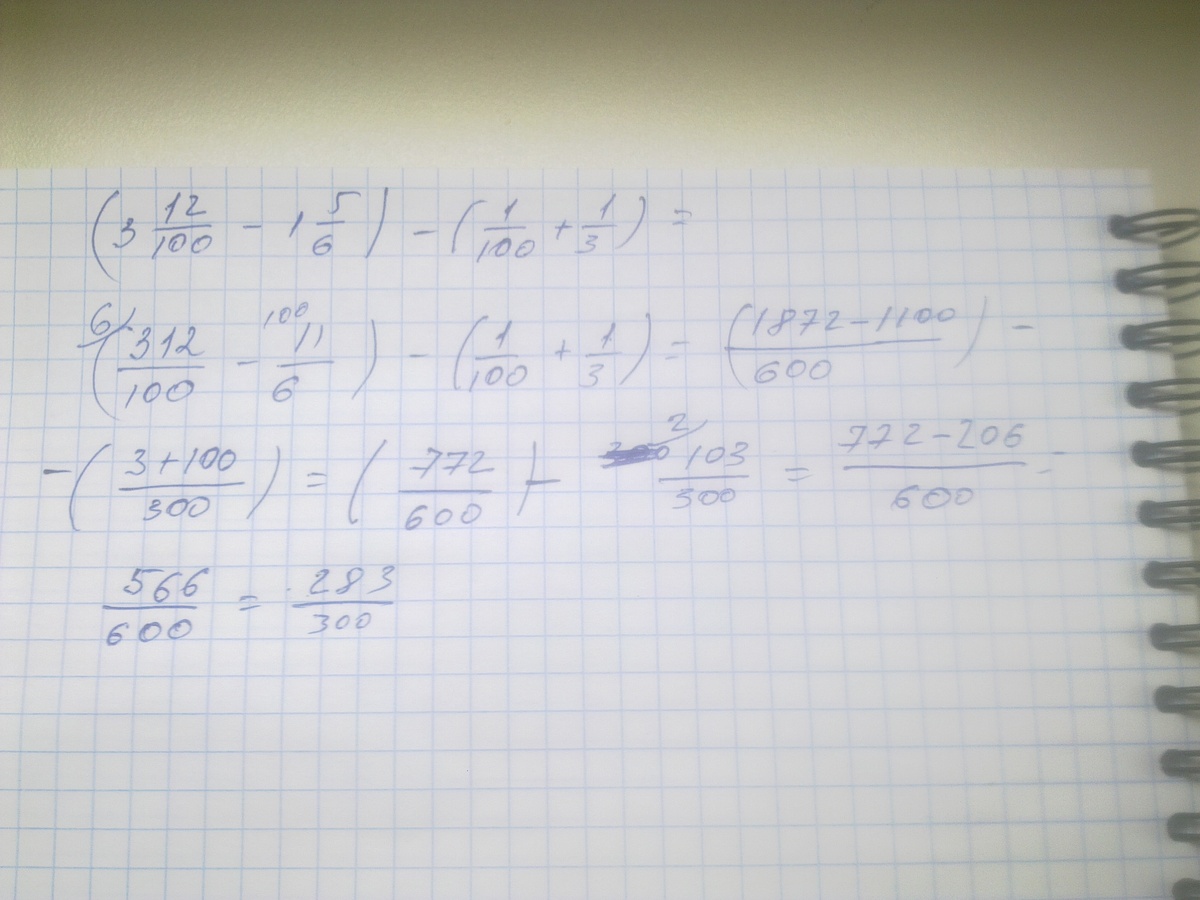 (3 12/100 - 1 5/6) - (1/100 + 1/3) =
6/ (312/100 - 100 11/6) - (1/100 + 1/3) = (1872-1100/600) -
-(3+100/300) = (772/600) - 2/ 103/300 = 772-206/600 =
566/600 = 283/300